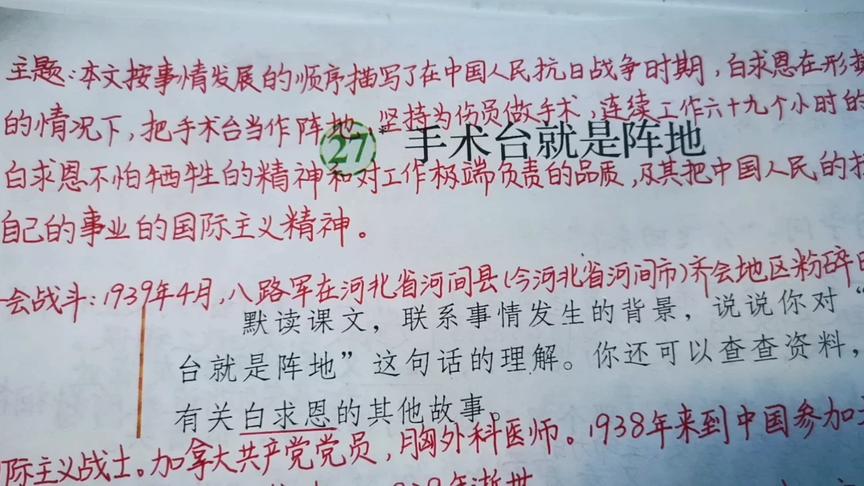 主题:本文按事情发展的顺序描写了在中国人民抗日战争时期,白求恩在形
的情况下,把手术台当作阵地,坚持为伤员做手术,连续工作六十九个小时的
27* 手术台就是阵地
白求恩不怕牺牲的精神和对工作极端负责的品质,及其把中国人民的
自己的事业的国际主义精神。
会战斗:1939年4月,八路军在河北省河间县(今河北省河间市)齐会地区粉碎
默读课文,联系事情发生的背景,说说你对“
台就是阵地”这句话的理解。你还可以查查资料,
有关白求恩的其他故事。
际主义战士。加拿大共产党党员,胸外科医师。1938年来到中国参加
年逝世